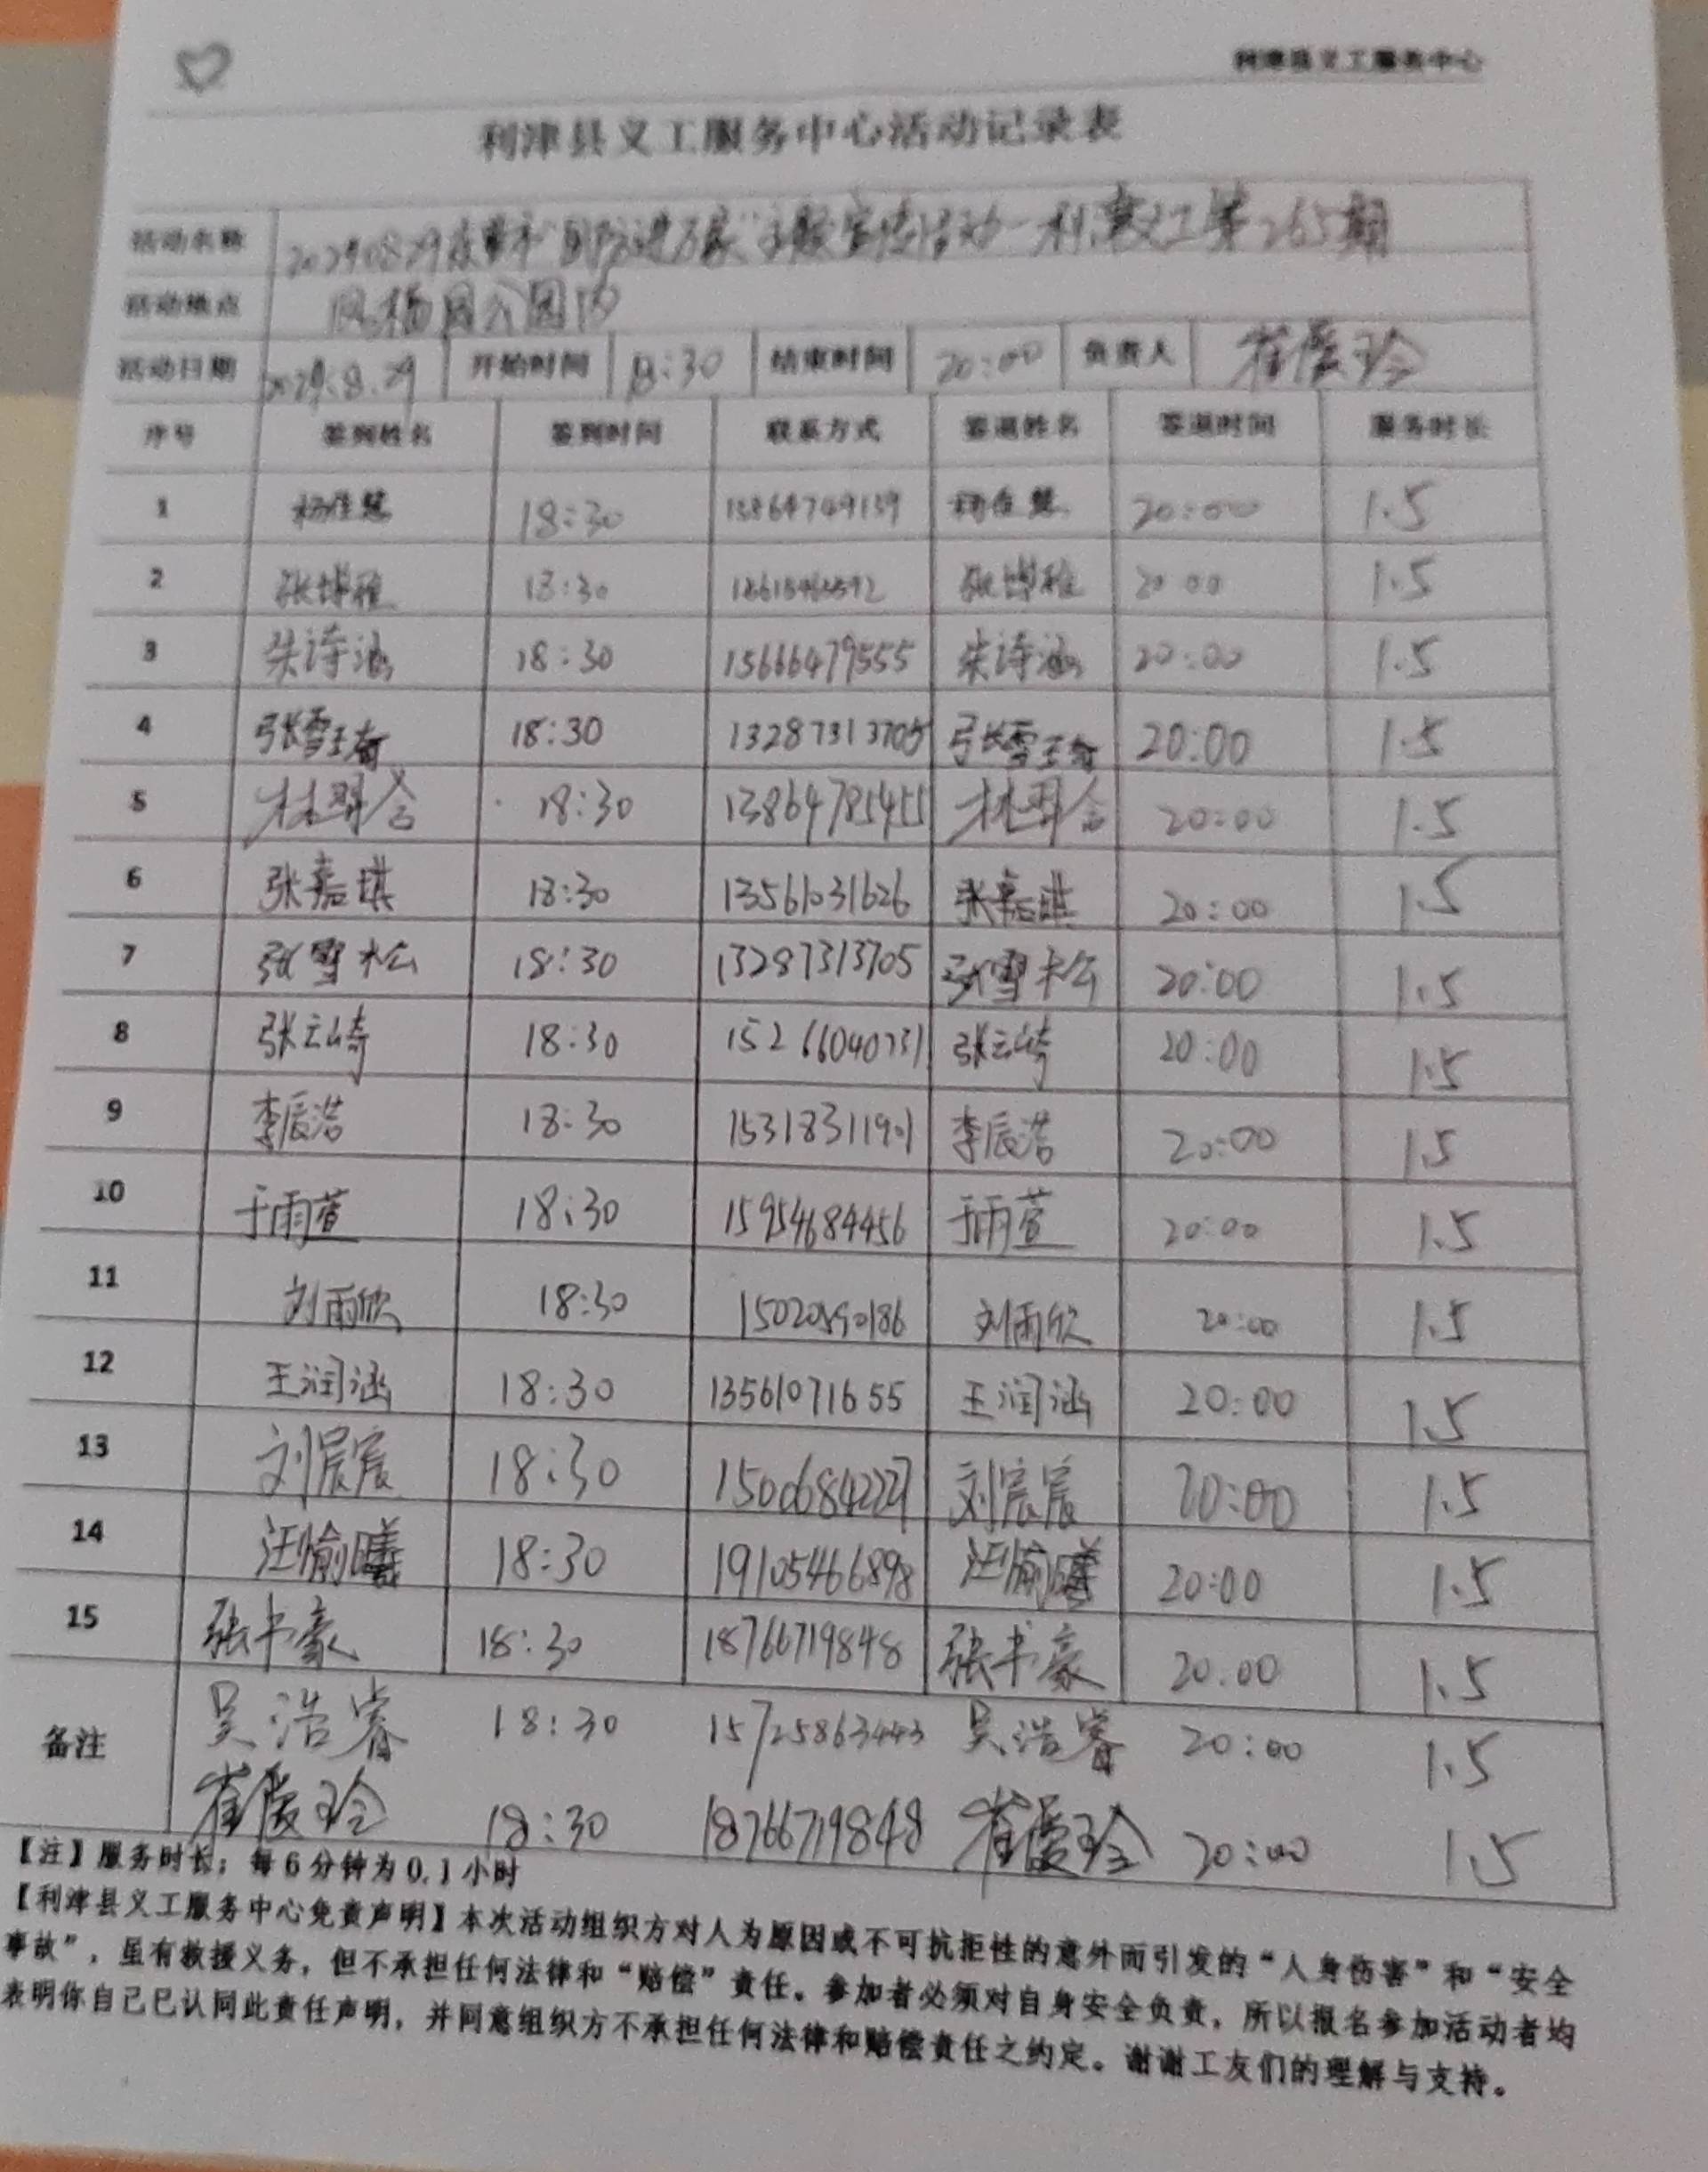 利津县义工服务中心
利津县义工服务中心活动记录表
活动名称 "国防进万家"主题宣传活动-利津义工第265期
活动地点 凤栖园公园内
活动日期 2024.8.29 开始时间 18:30 结束时间 20:00 负责人 崔爱玲
序号 签到姓名 签到时间 联系方式 签退姓名 签退时间 服务时长
1 杨佳慧 18:30 13864749139 杨佳慧 20:00 1.5
2 张博雅 18:30 张博雅 20:00 1.5
3 朱诗涵 18:30 15666479555 朱诗涵 20:00 1.5
4 张雪琦 18:30 13287313705 张雪琦 20:00 1.5
5 18:30 13864785455 20:00 1.5
6 张嘉琪 18:30 13561031626 张嘉琪 20:00 1.5
7 张雪松 18:30 13287313705 张雪松 20:00 1.5
8 张云崎 18:30 15266040731 张云崎 20:00 1.5
9 李辰浩 18:30 15318311901 李辰浩 20:00 1.5
10 于雨萱 18:30 15954684456 于雨萱 20:00 1.5
11 刘雨欣 18:30 15020590186 刘雨欣 20:00 1.5
12 王润涵 18:30 13561071655 王润涵 20:00 1.5
13 刘宸宸 18:30 15006842227 刘宸宸 20:00 1.5
14 汪愉曦 18:30 19105466898 汪愉曦 20:00 1.5
15 张书豪 18:30 18766719848 张书豪 20:00 1.5
备注 吴浩睿 18:30 15725863443 吴浩睿 20:00 1.5
崔爱玲 18:30 18766719848 崔爱玲 20:00 1.5
【注】服务时长：每6分钟为0.1小时
【利津县义工服务中心免责声明】本次活动组织方对人为原因或不可抗拒性的意外而引发的“人身伤害”和“安全
事故”，虽有救援义务，但不承担任何法律和“赔偿”责任。参加者必须对自身安全负责，所以报名参加活动者均
表明你自己已认同此责任声明，并同意组织方不承担任何法律和赔偿责任之约定。谢谢工友们的理解与支持。